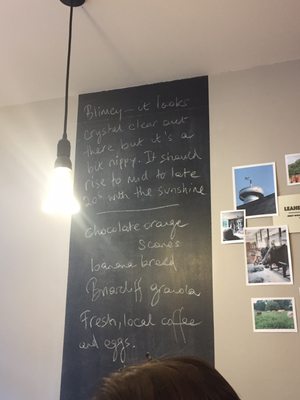 Blimey - it looks
crystal clear out
there but it's a
bit nippy. It should
rise to mid to late
20° with the sunshine
chocolate orange
scones
banana bread
Briarcliff granola
Fresh, local coffee
and eggs.